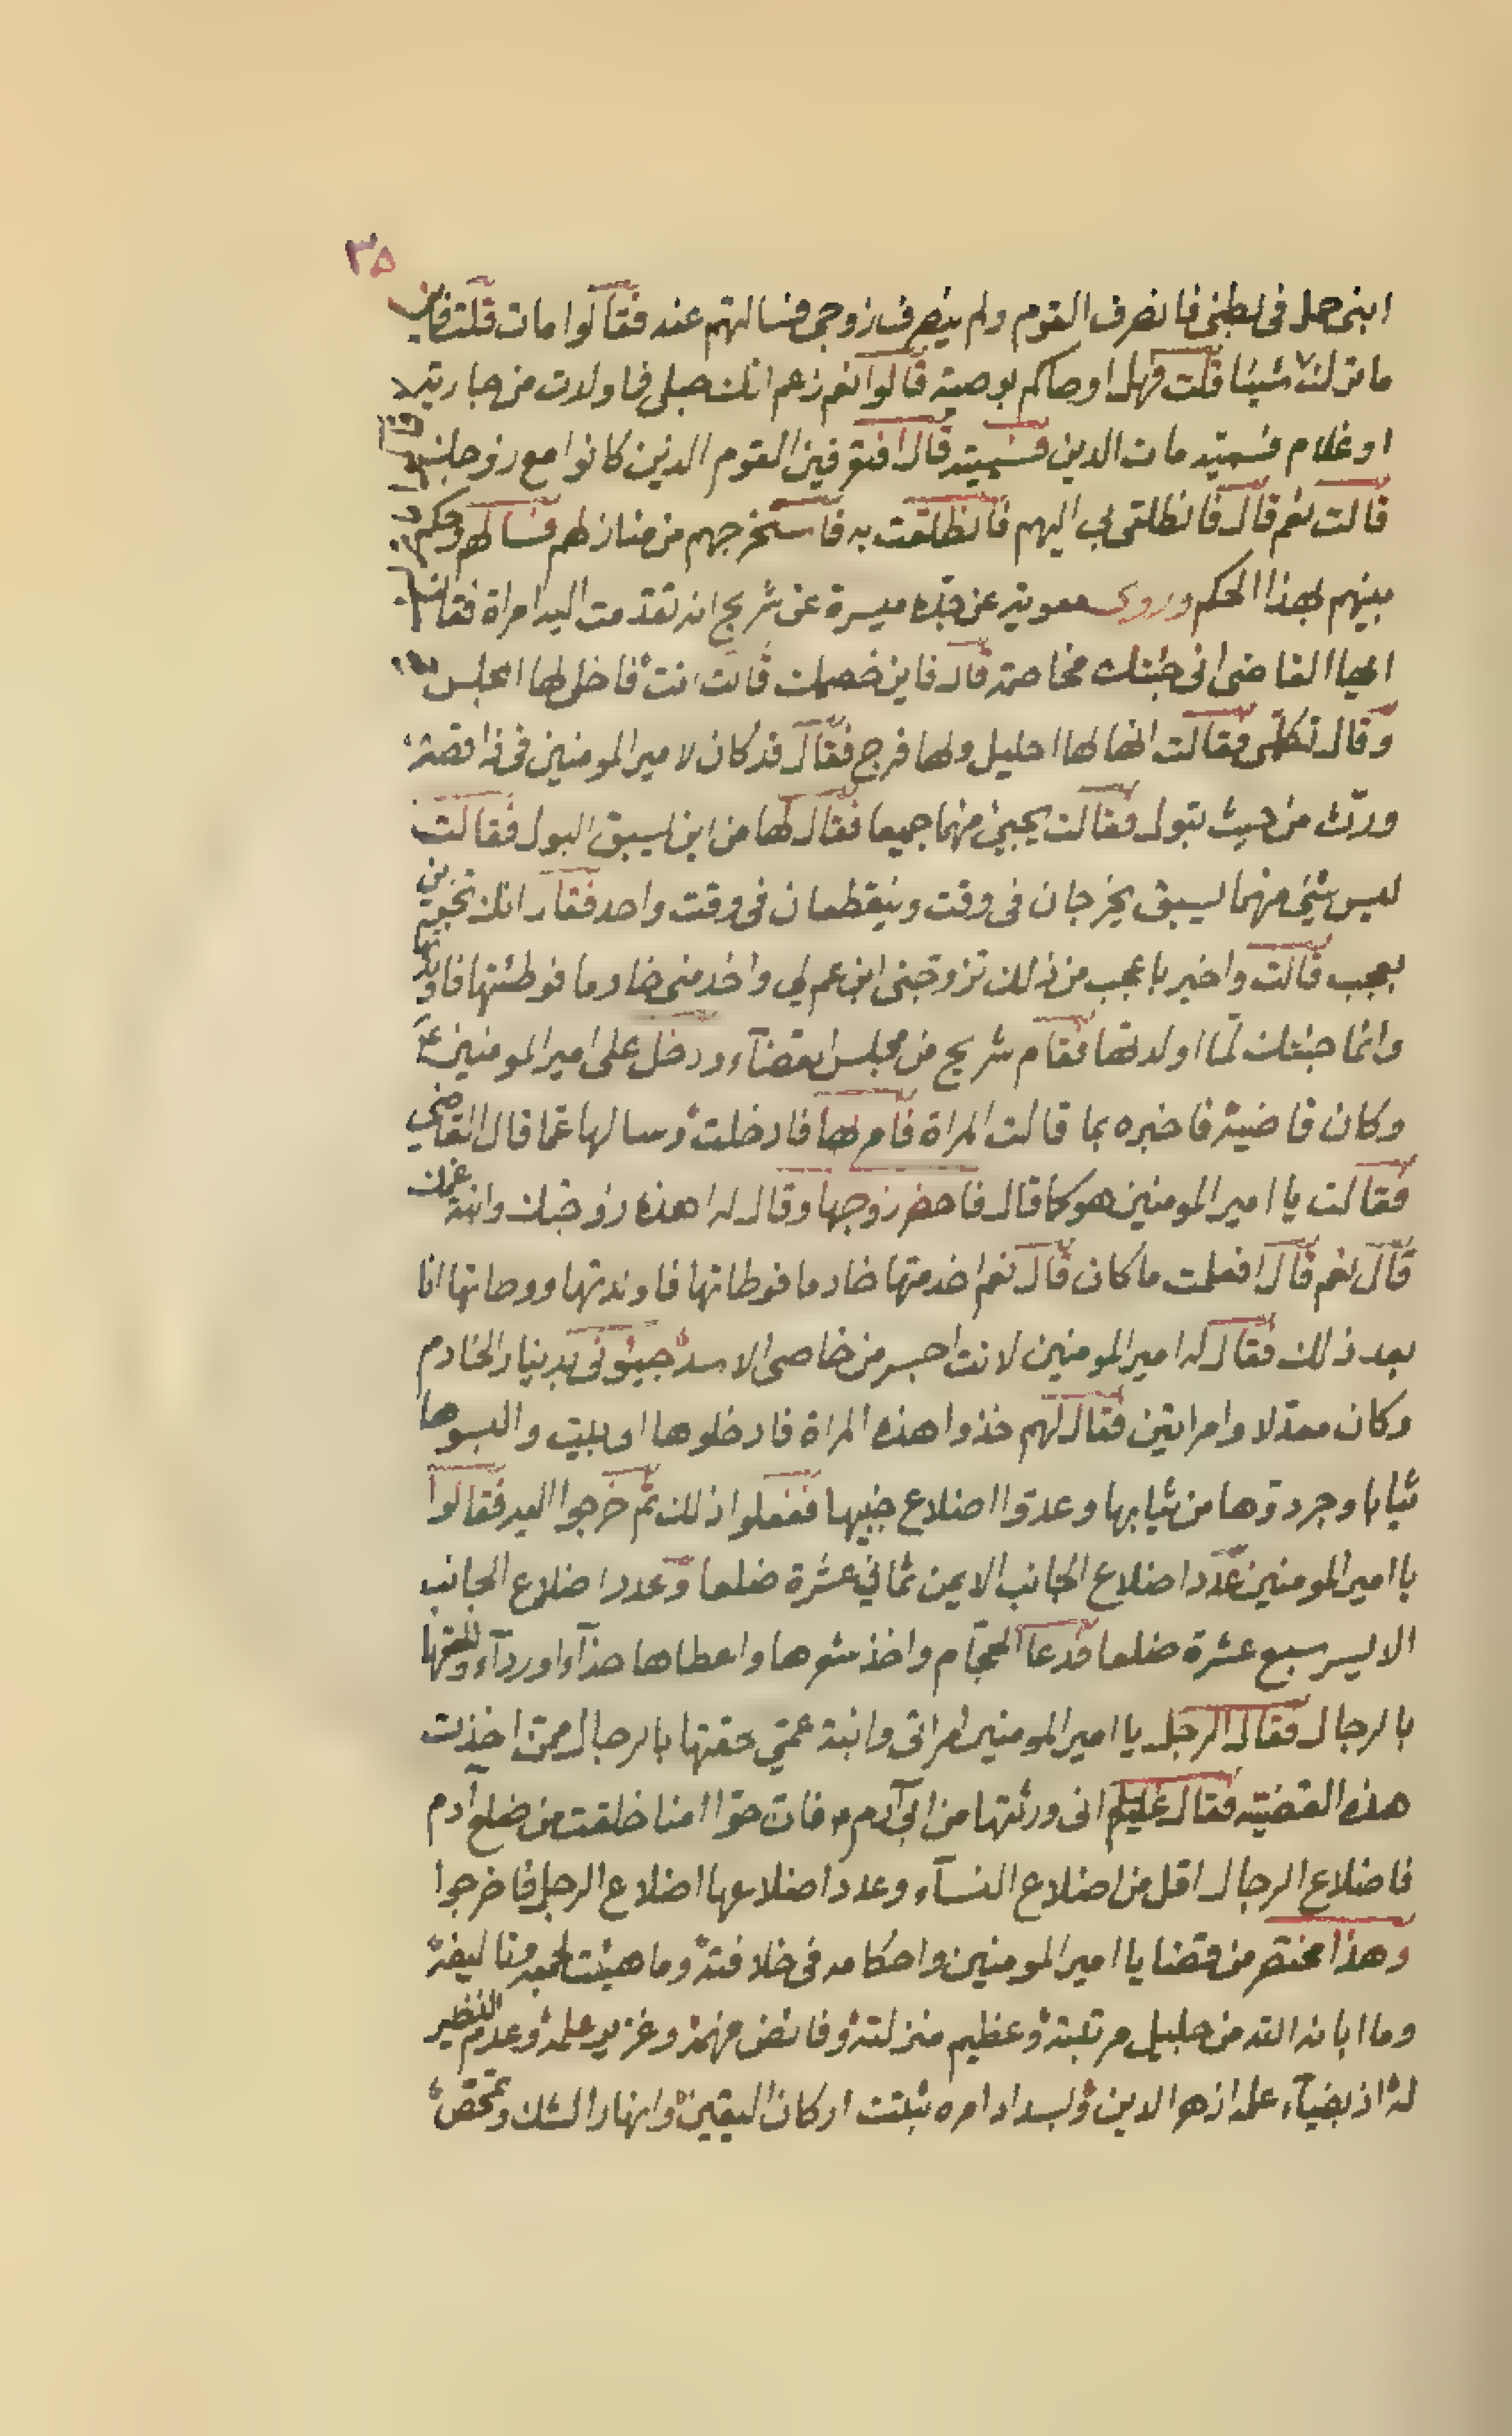 ٣٥
ابنى حمل فى بطنى فانصرف القوم ولم ينصرف زوجى فسالتهم عنه فقالوا مات قلت فاين
ما ترك شيئا قلت فهل اوصاكم بوصية قالوا نعم زعم انك حبلى فما ولدت من جارية
او غلام فسميه مات الدين فسميته قال افتعرفين القوم الذين كانوا مع زوجك
قالت نعم قال فانطلقى بى اليهم فانطلقت به فاستخرجهم من منازلهم فسالهم وحكم
بينهم بهذا الحكم وروى معوية عن جده ميسرة عن شريح انه تقدمت اليه امراة فقالت
ايها القاضى انى جئتك مخاصمة قال فاين خصمك قالت انت فاخلى لها المجلس
وقال تكلمى فقالت انها لها احليل ولها فرج فقال قد كان لامير المومنين فى ذا قصة
ورث من حيث تبول فقالت يجيئ منهما جميعا فقال لها من اين يسبق البول فقالت
ليس شيئ منهما يسبق يخرجان فى وقت وينقطعان فى وقت واحد فقال انك تخبرينى
بعجب قالت واخبر باعجب من ذلك تزوجنى ابن عم لى واخدمنى خادما فوطئتها فاولدتها
وانما جئتك لما اولدتها فقام شريح من مجلس القضآء ودخل على امير المومنين ع
وكان قاضية فاخبره بما قالت المراة فامر بها فادخلت وسالها عما قال القاضى
فقالت يا امير المومنين هو كما قال فاحضر زوجها وقال له اهذه زوجتك وابنة عمك
قال نعم قال افعلمت ما كان قال نعم اخدمتها خادما فوطاتها فاولدتها ووطاتها انا
بعد ذلك فقال له امير المومنين لانت اجسر من خاصى الاسد جيئونى بدينار الخادم
وكان معدلا وامراتين فقال لهم خذوا هذه المراة فادخلوها الى البيت والبسوها
ثيابا وجردوها من ثيابها وعدوا اضلاع جنبيها ففعلوا ذلك ثم خرجوا اليه فقالوا
يا امير المومنين عدد اضلاع الجانب الايمن ثمانى عشرة ضلعا وعدد اضلاع الجانب
الايسر سبع عشرة ضلعا فدعا الحجام واخذ شعرها واعطاها حذآء ورداء والحقها
بالرجال فقال الرجل يا امير المومنين امراتى وابنة عمى الحقتها بالرجال ممن اخذت
هذه القضية فقال عليلم انى ورثتها من ابى آدم فان حوا امنا خلقت من ضلع آدم
فاضلاع الرجال اقل من اضلاع النسآء وعدد اضلاعها اضلاع الرجل فاخرجوا
وهذا مختصر من قضايا امير المومنين واحكامه فى خلافته وما هيئت لجمعه وتاليفه
وما ابانه الله من جليل مرتبته وعظيم منزلته وفائض فهمه وغزير علمه وعدم النظير
له اذ بضيآء علمه ازهر الدين وبسداد امره ثبتت اركان اليقين وانهار الشك وتمحق